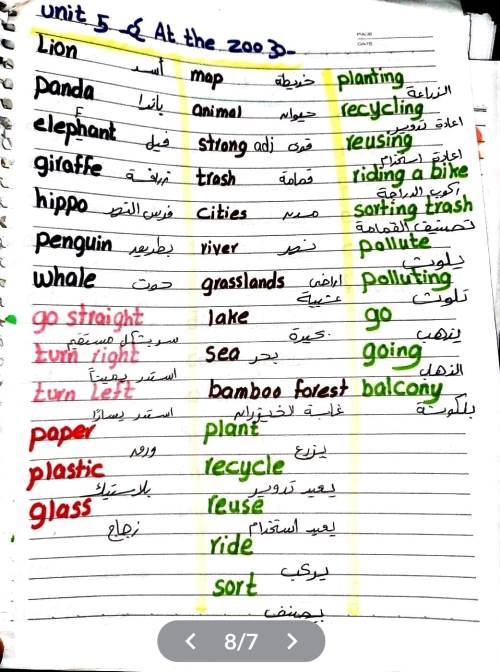 unit 5 At the zoo
Lion
أسد
panda
باندا
elephant
فيل
giraffe زرافة
hippo فرس النهر
penguin بطريق
whale حوت
go straight
turn right
استدر يميناً
turn left
استدر يسارًا
paper
ورق
plastic
بلاستيك
glass
زجاج
map خريطة
animal حيوان
strong adj قوى
trash قمامة
cities مدن
river نهر
grasslands اراضى
عشبية
lake
بحيرة
sea بحر
bamboo forest
غابة الخيزران
plant
يزرع
recycle
يعيد تدوير
reuse
يعيد استخدام
ride
يركب
sort
يصنف
planting
الزراعة
recycling
اعادة تدوير
reusing
اعادة استخدام
riding a bike
ركوب الدراجة
sorting trash
تصنيف القمامة
pollute
يلوث
polluting
تلوث
go
يذهب
going
الذهاب
balcony
بلكونة
8/7